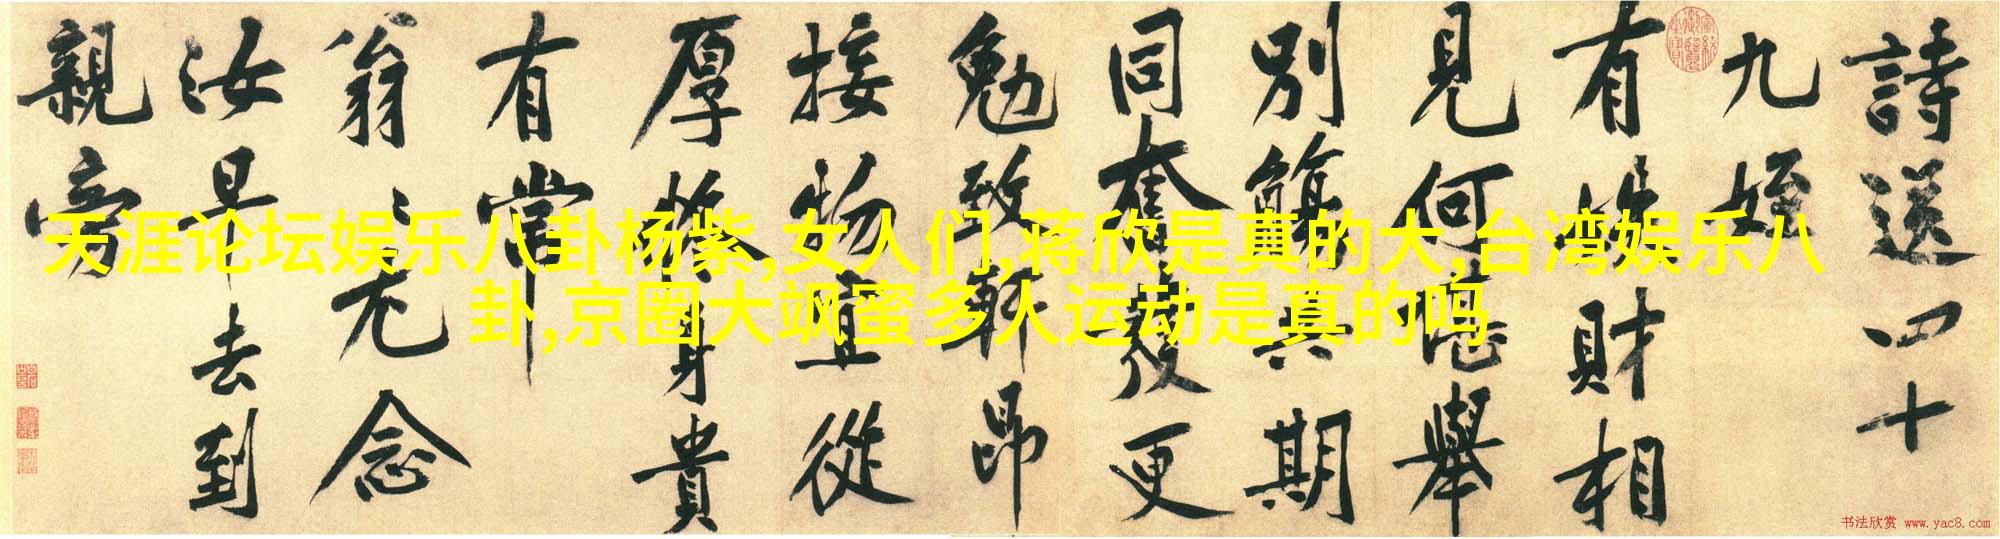 詩送四十
九姪
有財相
見何舉
別觴與期
同奮發更
勉致軒昂
接物宜從
厚身貴
有常
翁念
汝早去到
親旁
天涯论坛娱乐八卦杨紫,女人们,蒋欣是真的大,台湾娱乐八
卦,京圈大飒蜜多人运动是真的吗
书法欣赏 www.yac8.com